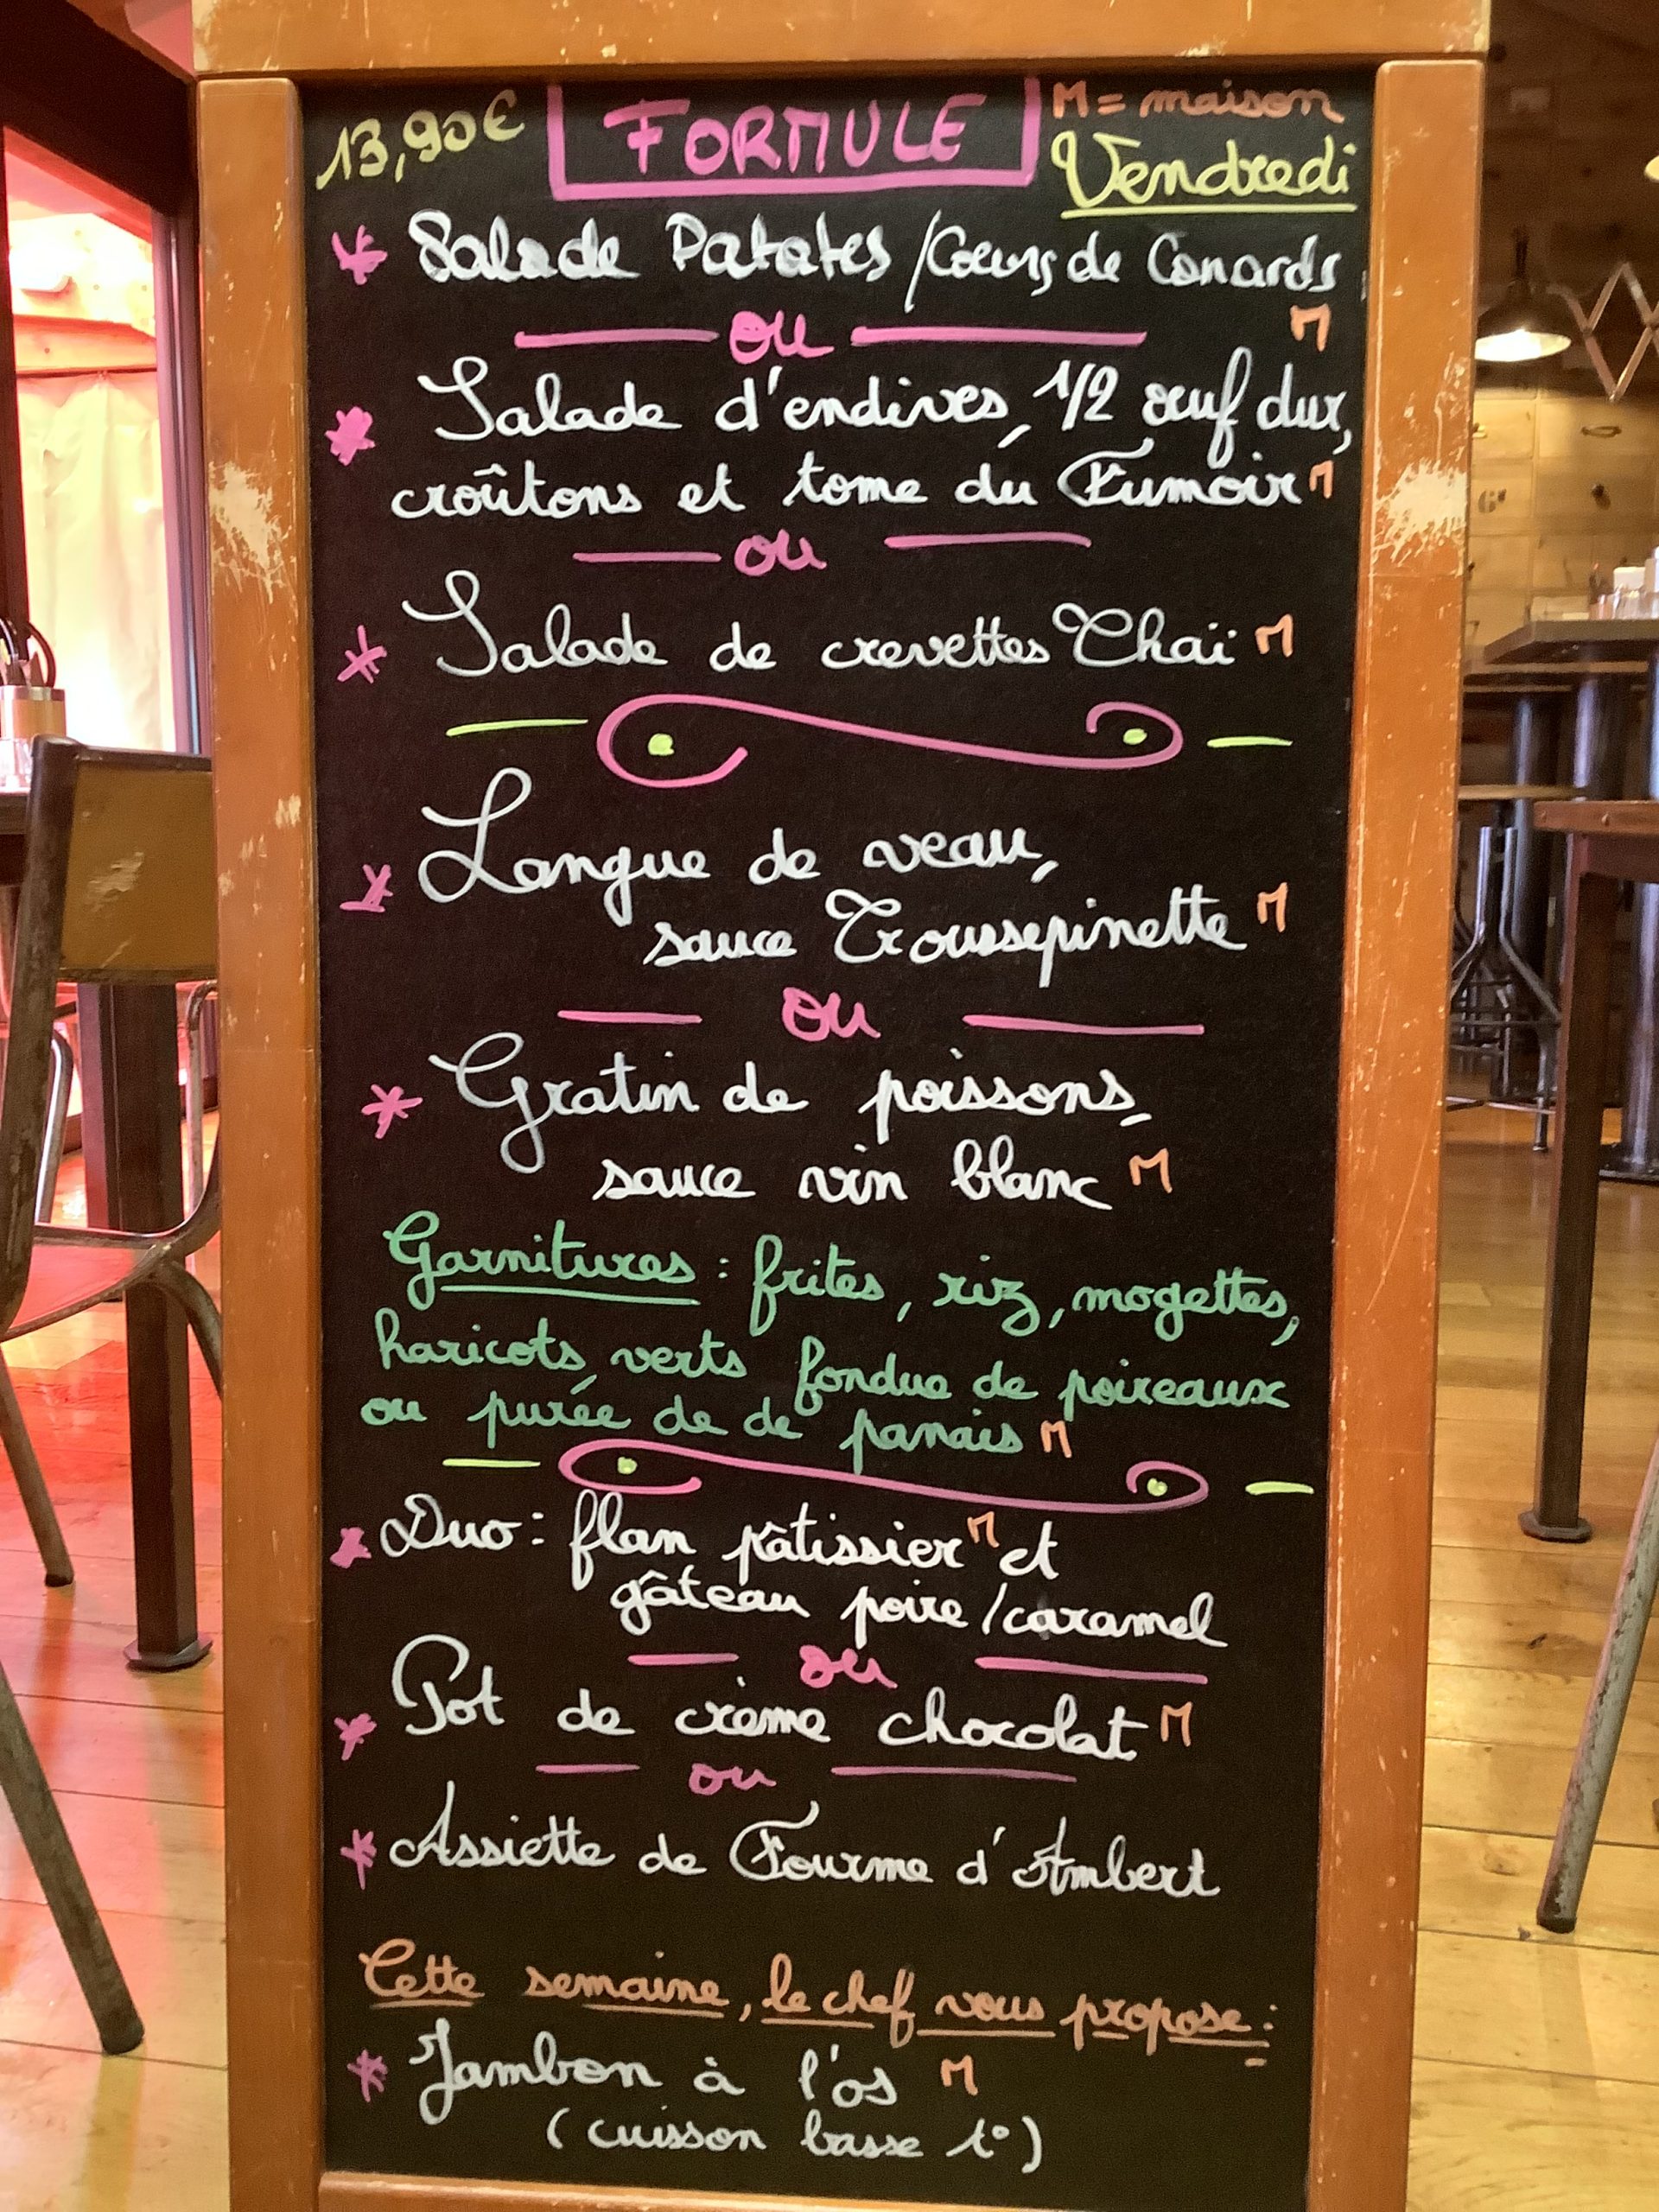 13,90€ FORMULE M = maison
Vendredi
* Salade Patates / Coeurs de Canards
M
ou
* Salade d'endives, 1/2 œuf dur,
croûtons et tome du Fumoir M
ou
* Salade de crevettes Thaï M
* Langue de veau,
sauce Troussepinette M
ou
* Gratin de poissons,
sauce vin blanc M
Garnitures : frites, riz, mogettes,
haricots verts, fondue de poireaux
ou purée de de panais M
* Duo : flan pâtissier M et
gâteau poire / caramel
ou
* Pot de crème chocolat M
ou
* Assiette de Fourme d'Ambert
Cette semaine, le chef vous propose :
* Jambon à l'os M
(cuisson basse t°)